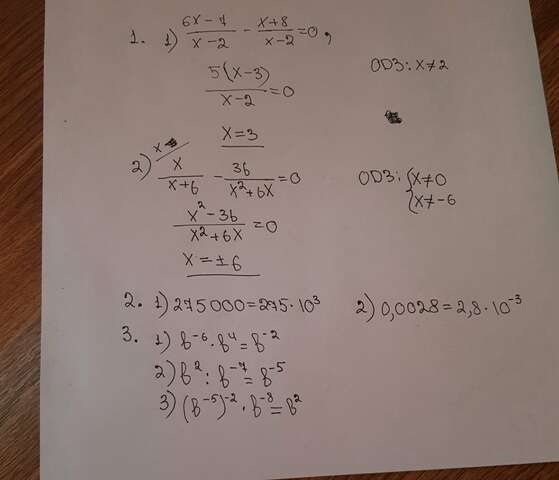 1. 1) (6x-7)/(x-2) - (x+8)/(x-2) = 0, ОДЗ: x≠2
5(x-3)/(x-2) = 0
x=3
2) x/(x+6) - 36/(x²+6x) = 0 ОДЗ: {x≠0
x
{x≠-6
(x²-36)/(x²+6x) = 0
x=±6
2. 1) 275000=275·10³ 2) 0,0028=2,8·10⁻³
3. 1) b⁻⁶·b⁴=b⁻²
2) b²:b⁻⁷=b⁻⁵
3) (b⁻⁵)⁻²·b⁻⁸=b²